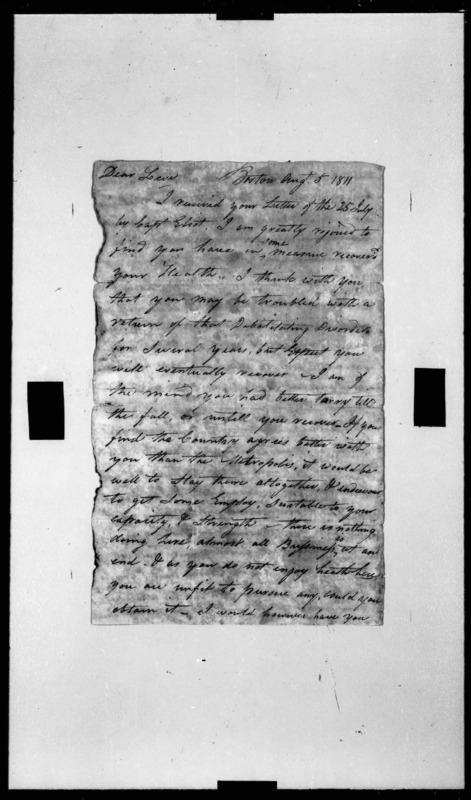 Dear Levi Boston Aug. 5 1811
I received your Letter of the 25 July
by Capt Eliot. I am greatly rejoiced to
find you have in some measure recovered
your Health. I think with you
that you may be troubled with a
return of that Debilitating Disorder
for Several years, but Expect you
will eventually recover. I am of
the mind you had better tarry till
the fall, or untill you recover. If you
find the Country agrees better with
you than the Metropolis, it would be
well to Stay there altogether, & endeavour
to get Some Employ, Suitable to your
capacity, & Strength - there is nothing
doing here, almost all Business is at an
end. & as you do not enjoy health here,
you are unfit to pursue any, could you
obtain it - I would however have you